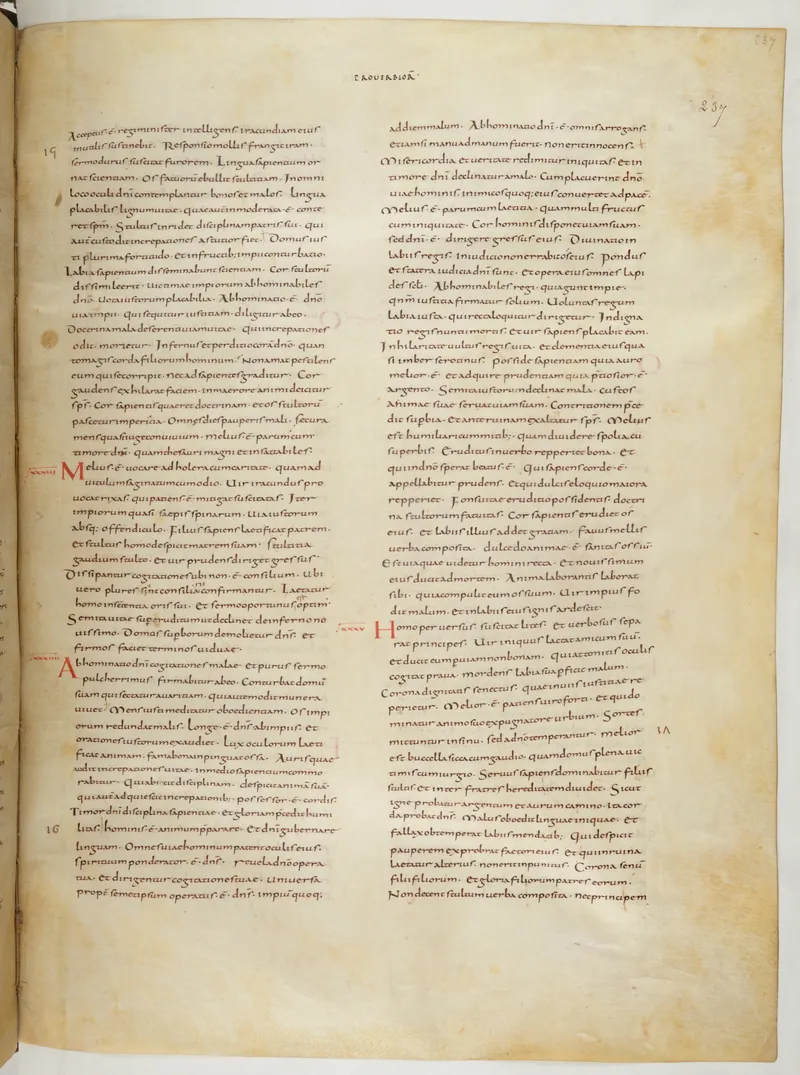 PROUERBIORŪ
237
237
Acceptus ē regi minister intelligens iracundiam eius
15
inutilis sustinebit. Responsio mollis frangit iram.
sermo durus suscitat furorem. Lingua sapientium or
nat scientiam. Os fatuorū ebullit stultitiam. In omni
loco oculi dn̄i contemplantur bonos et malos. Lingua
placabilis lignum uitae. quae autē inmoderata ē conte
ret sp̄m. Stultus inridet disciplinam patris sui. qui
autē custodit increpationes astutior fiet. Domus ius
ti plurima fortitudo. et in fructib; impii conturbatio.
Labia sapientium disseminabunt scientiam. Cor stultorū
dissimile erit. Uictimae impiorum abhominabiles
dn̄o. Uota iustorum placabilia. Abhominatio ē dn̄o
uia impii. qui sequitur iustitiam. diligitur ab eo.
Doctrina mala deserenti uiam uitae. qui increpationes
odit. morietur. Infernus et perditio corā dn̄o. quan
to magis corda filiorum hominum. Non amat pestilens
eum qui se corripit. nec ad sapientes graditur. Cor
gaudens exhilarat faciem. in maerore animi deicitur
sp̄s. Cor sapientis quaeret doctrinam. et os stultorū
pascetur imperitia. Omnes dies pauperis mali. secura
mens quasi iuge conuiuium. melius ē parum cum
timore dn̄i. quam thesauri magni et insatiabiles.
Melius ē uocare ad holera cum caritate. quam ad
uitulum saginatum cum odio. Uir iracundus pro
uocat rixas. qui patiens ē mitigat suscitatas. Iter
impiorum quasi saepis spinarum. Uia iustorum
absq; offendiculo. Filius sapiens laetificat patrem.
et stultus homo despicit matrem suam. Stultitia
gaudium stulto. et uir prudens diriget gressus
Dissipantur cogitationes ubi non ē consilium. Ubi
uero plures sint consiliarii confirmantur. Laetatur
homo in sententia oris sui. et sermo oportunus optimus
Semita uitae super eruditum ut declinet de inferno no
uissimo. Domus supborum demolietur dn̄s. et
firmos faciet terminos uiduae.
Abhominatio dn̄i cogitationes malae. et purus sermo
pulcherrimus firmabitur ab eo. Conturbat domū
suam qui sectatur auaritiam. qui autem odit munera
uiuet. Mens iusta meditatur oboedientiam. Os impi
orum redundat malis. Longe ē dn̄s ab impiis. et
orationes iustorum exaudiet. Lux oculorum laeti
ficat animam. fama bona inpinguat ossa. Auris quae
audit increpationes uitae. in medio sapientium commo
rabitur. Qui abicit disciplinam. despicit animā suā.
qui autē adquiescit increpationib; possessor ē cordis.
Timor dn̄i disciplina sapientiae. et gloriam p̄cedit humi
16
litas. hominis ē animum pparare. et dn̄i gubernare
linguam. Omnes uiae hominum patent oculis eius.
spirituum ponderator ē dn̄s. Reuela dn̄o opera
tua. et dirigentur cogitationes tuae. Uniuersa
propt̄ semetipsum operatus ē dn̄s. impiū quoq;
ad diem malum. Abhominatio dn̄i ē omnis arrogans.
etiam si manu ad manum fuerit. non erit innocens.
Misericordia et ueritate redimitur iniquitas. et in
timore dn̄i declinatur a malo. Cum placuerint dn̄o
uiae hominis. inimicos quoq; eius conuertet ad pacē.
Melius ē parum cum laetitia. quam multi fructus
cum iniquitate. Cor hominis disponet uiam suam.
sed dn̄i ē dirigere gressus eius. Diuinatio in
labiis regis. In iudicio non errabit os eius. Pondus
et statera iudicia dn̄i sunt. et opera eius omnes lapi
des scli. Abhominabiles regi qui agunt impie.
qnm̄ iustitia firmatur solium. Uoluntas regum
labia iusta. qui recta loquitur dirigetur. Indigna
tio regis nuntii mortis. et uir sapiens placabit eam.
In hilaritate uultus regis uita. et clementia eius qua
si imber serotinus. Posside sapientiam quia auro
melior ē. et adquire prudentiam quia p̄tiosior ē
argento. Semita iustorum declinat mala. custos
animae suae seruat uiam suam. Contritionem p̄ce
dit supbia. et ante ruinam exaltatur sp̄s. Melius
est humiliari cum mitib; quam diuidere spolia cū
superbis. Eruditus in uerbo repperiet bona. et
qui in dn̄o sperat beatus ē. Qui sapiens corde ē
appellabitur prudens. et qui dulcis eloquio maiora
repperiet. Fons uitae eruditio possidentis. doctri
na stultorum fatuitas. Cor sapientis erudiet os
eius. et labiis illius addet gratiam. Fauus mellis
uerba composita. dulcedo animae ē sanitas ossiū.
Est uia quae uidetur homini recta. et nouissimum
eius ducit ad mortem. Anima laborantis laborat
sibi. quia compulit eum os suum. Uir impius fo
dit malum. et in labiis eius ignis ardescit.
Homo peruersus suscitat lites. et uerbosus sepa
rat principes. Uir iniquus lactat amicum suū.
et ducit eum p uiam non bonam. Qui attonitis oculis
cogitat praua. mordens labia sua pficit malum.
Corona dignitatis senectus. quae in uiis iustitiae re
perietur. Melior ē patiens uiro forti. et qui do
minatur animo suo expugnatore urbium. Sortes
mittuntur in sinu. sed a dn̄o temperantur. Melior
est buccella sicca cum gaudio. quam domus plena uic
timis cum iurgio. Seruus sapiens dominabitur filiis
stultis. et inter fratres hereditatem diuidet. Sicut
igne probatur argentum et aurum camino. ita cor
da probat dn̄s. Malus oboedit linguae iniquae. et
fallax obtemperat labiis mendacib; Qui despicit
pauperem exprobrat factori eius. et qui in ruina
laetatur alterius. non erit inpunitus. Corona senū
filii filiorum. et gloria filiorum patres eorum.
Non decent stultum uerba composita. nec principem